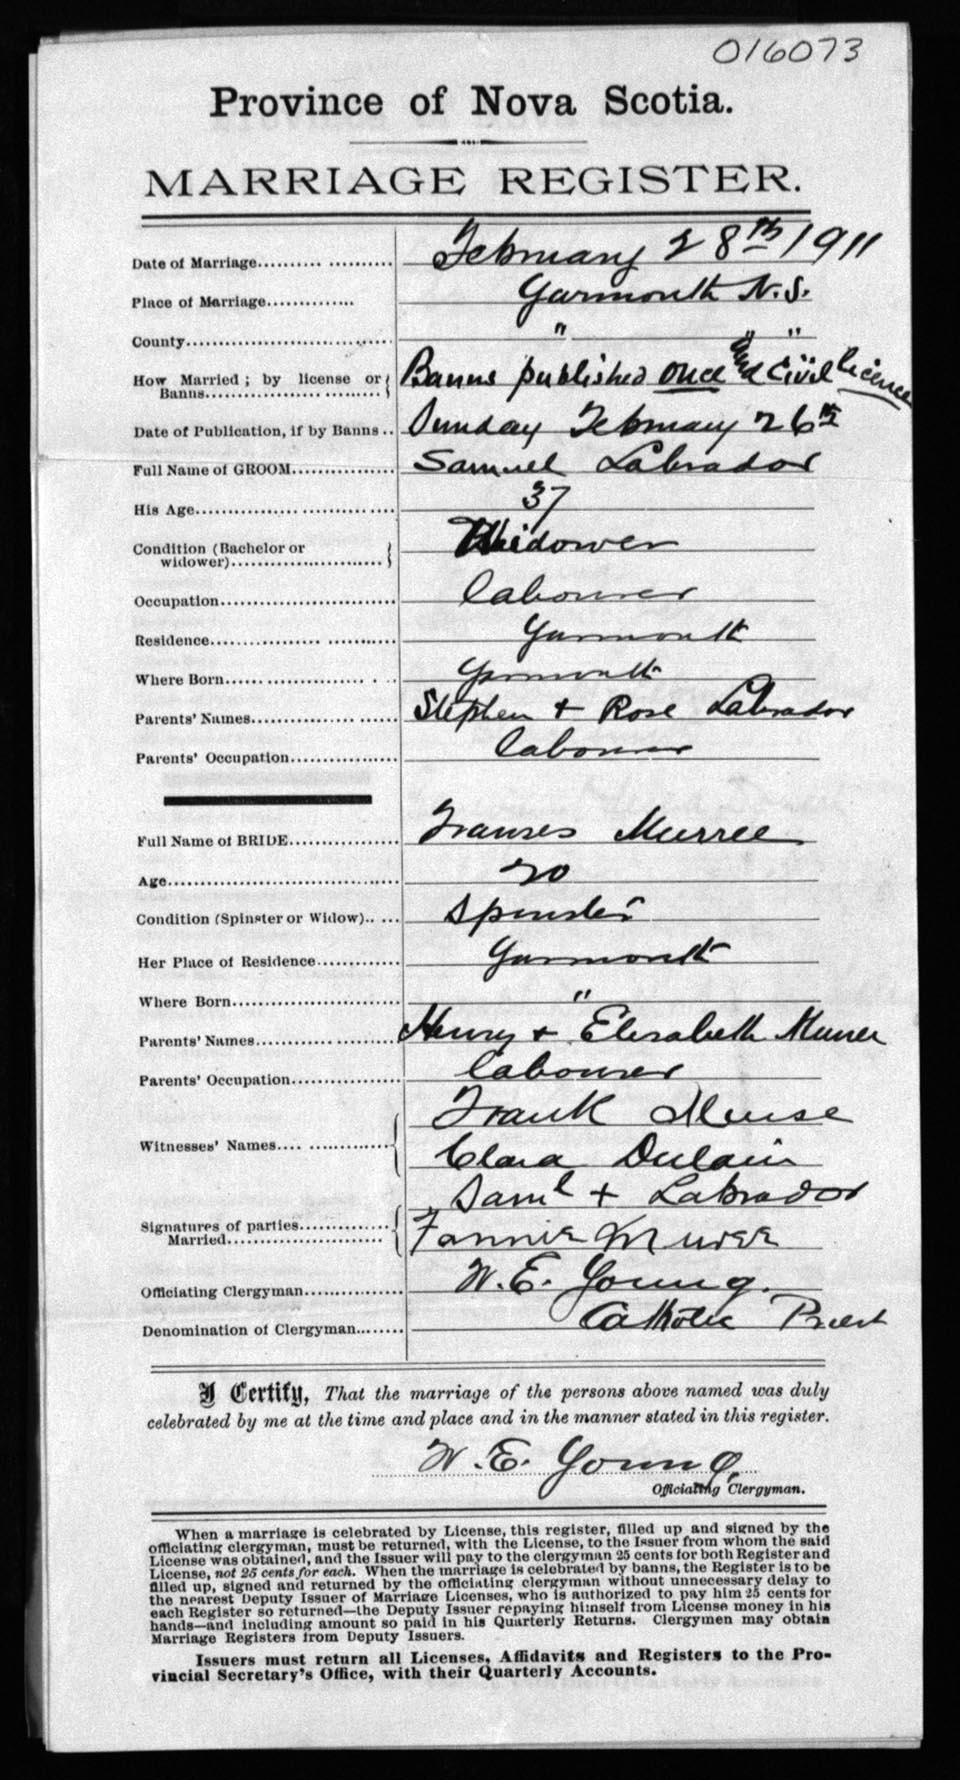 016073
Province of Nova Scotia.
MARRIAGE REGISTER.
Date of Marriage.................... February 28th 1911
Place of Marriage.............. Yarmouth N.S.
County................................ " " "
How Married; by license or Banns published once and Civil licence
Banns.............................
Date of Publication, if by Banns.. Sunday February 26th
Full Name of GROOM................ Samuel Labrador
His Age............................... 37
Condition (Bachelor or Widower
widower).........................
Occupation........................... labourer
Residence............................ Yarmouth
Where Born......................... Yarmouth
Parents' Names...................... Stephen + Rose Labrador
Parents' Occupation................. labourer
Full Name of BRIDE................. Franses Murree
Age.................................... 20
Condition (Spinster or Widow)..... Spinster
Her Place of Residence............. Yarmouth
Where Born......................... "
Parents' Names...................... Henry + Elisabeth Murree
Parents' Occupation................. labourer
Frank Meuse
Witnesses' Names....................
Clara Dulain
Saml + Labrador
Signatures of parties...............
Married......................... Fannie Muree
Officiating Clergyman............... W. E. Young.
Denomination of Clergyman........ Catholic Priest
I Certify, That the marriage of the persons above named was duly
celebrated by me at the time and place and in the manner stated in this register.
W. E. Young.
Officiating Clergyman.
When a marriage is celebrated by License, this register, filled up and signed by the
officiating clergyman, must be returned, with the License, to the Issuer from whom the said
License was obtained, and the Issuer will pay to the clergyman 25 cents for both Register and
License, not 25 cents for each. When the marriage is celebrated by banns, the Register is to be
filled up, signed and returned by the officiating clergyman without unnecessary delay to
the nearest Deputy Issuer of Marriage Licenses, who is authorized to pay him 25 cents for
each Register so returned—the Deputy Issuer repaying himself from License money in his
hands—and including amount so paid in his Quarterly Returns. Clergymen may obtain
Marriage Registers from Deputy Issuers.
Issuers must return all Licenses, Affidavits and Registers to the Pro-
vincial Secretary's Office, with their Quarterly Accounts.